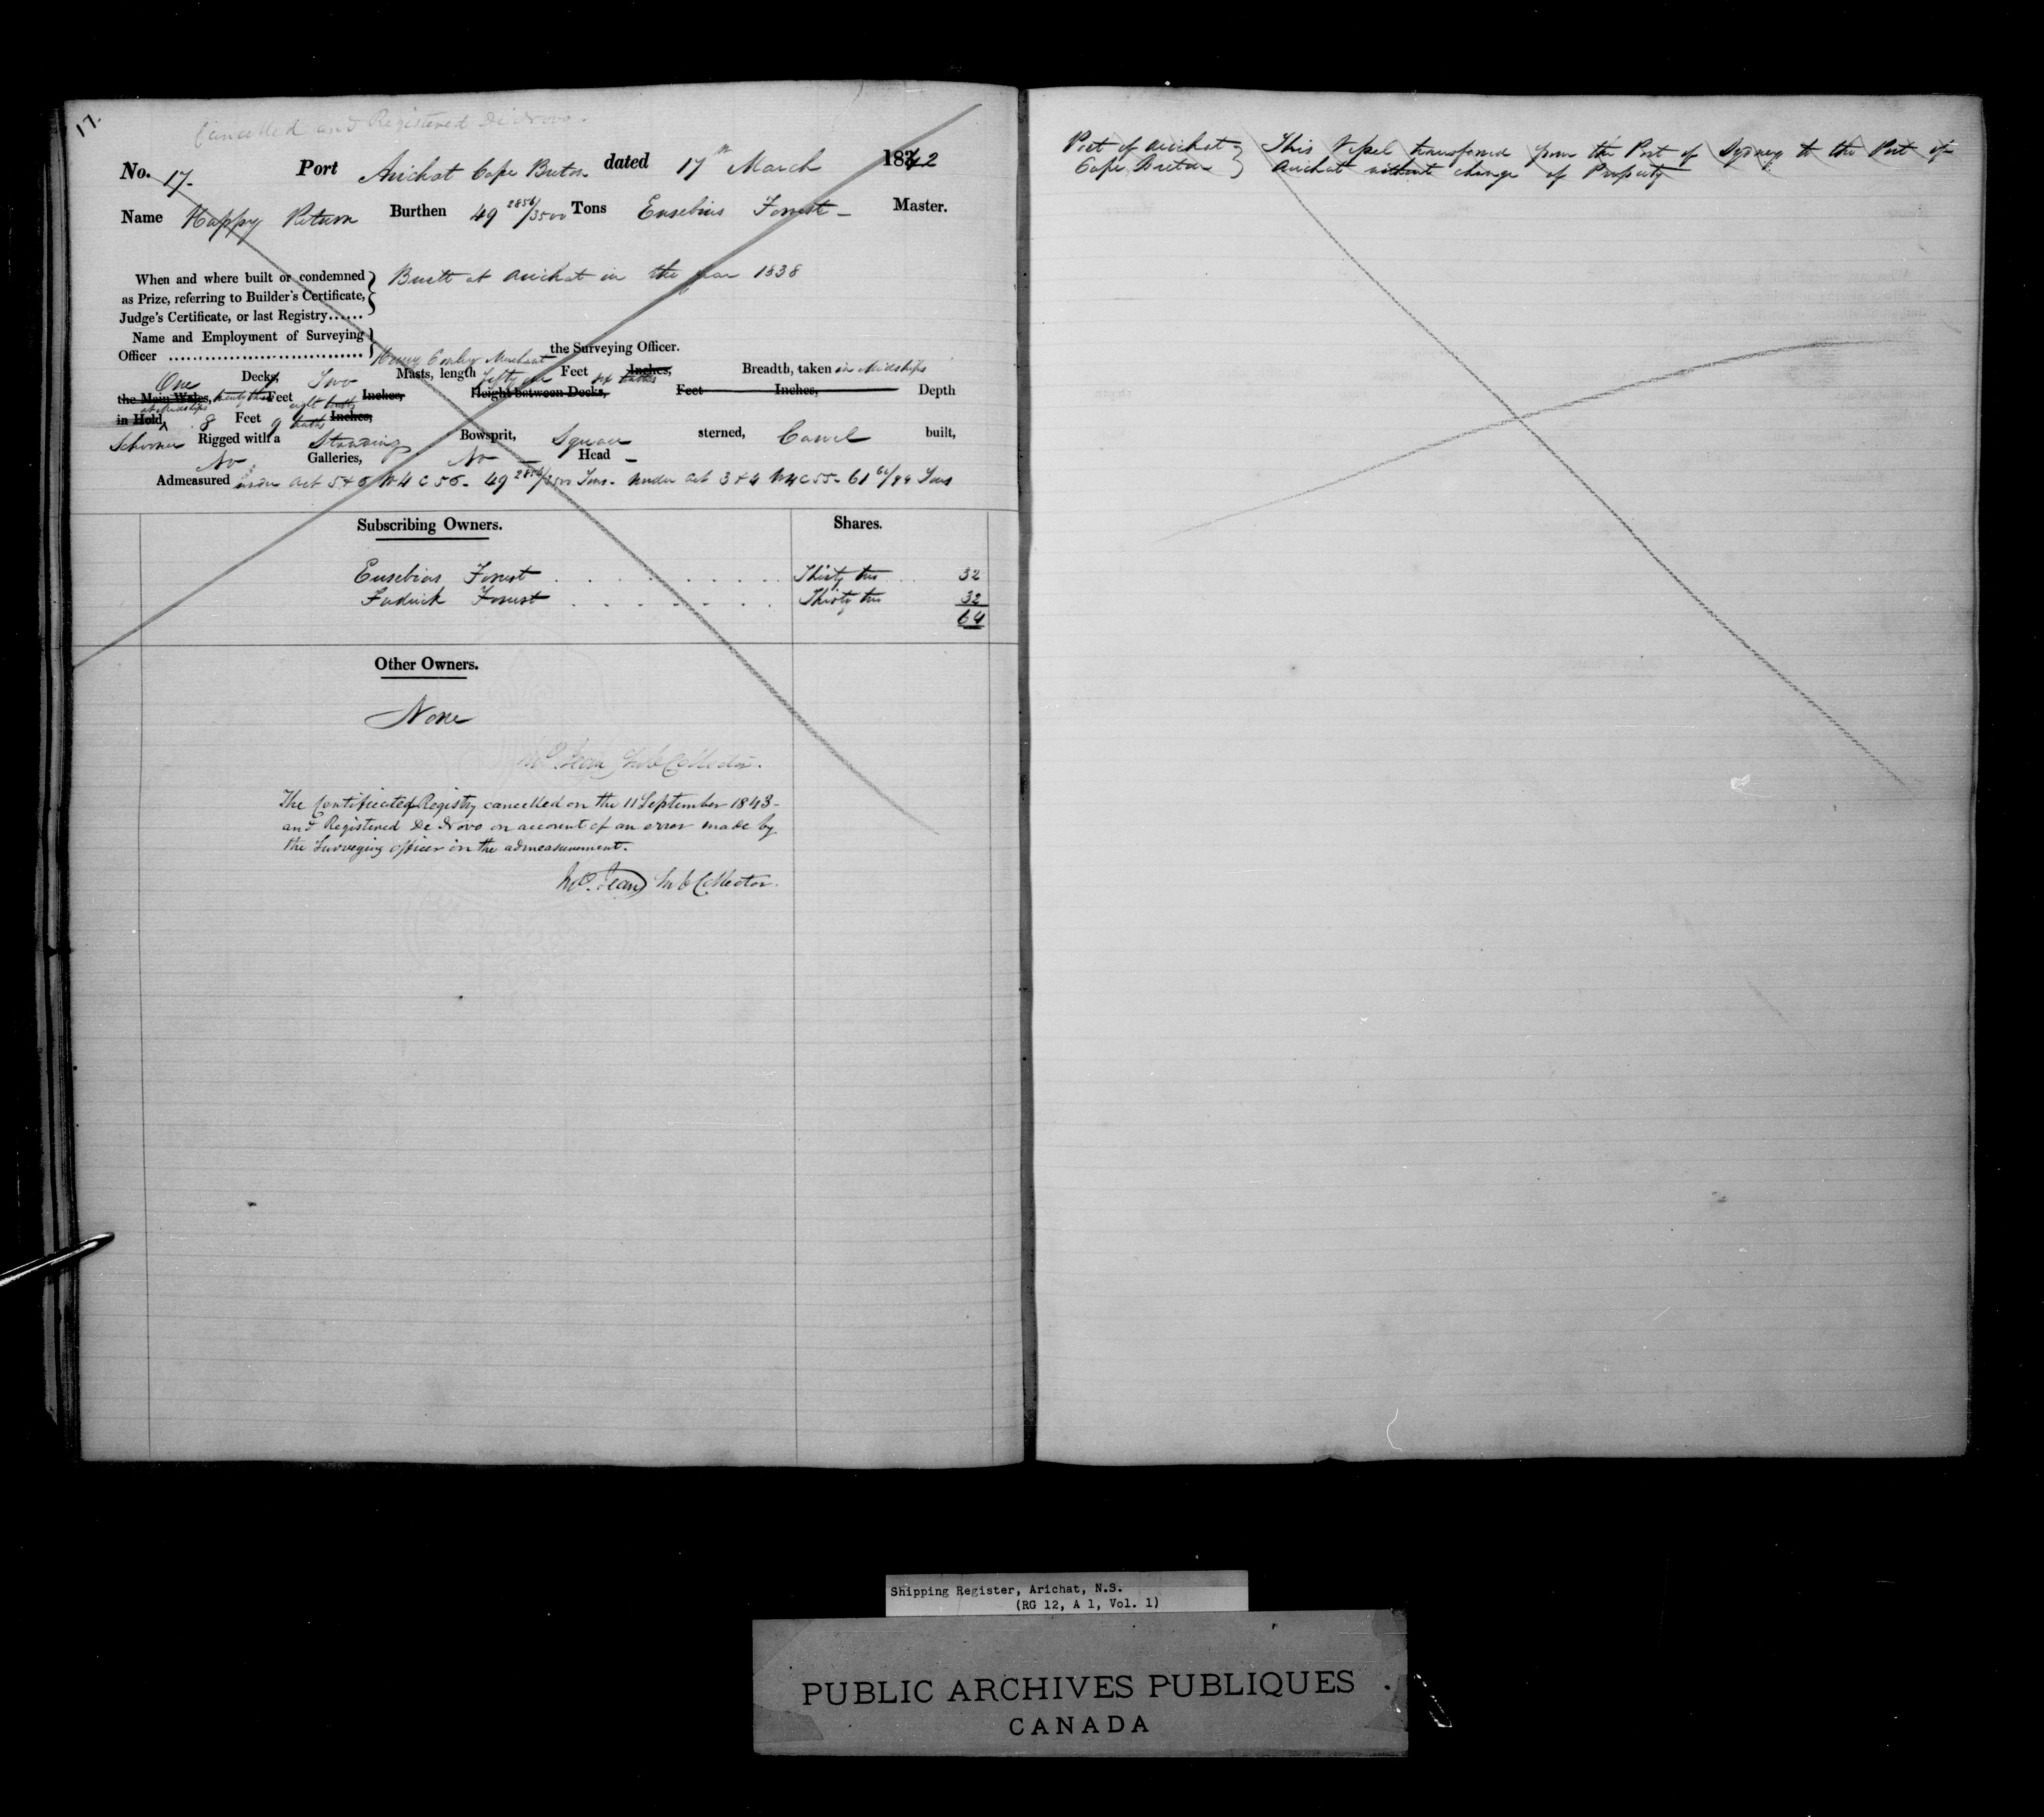 17.
Cancelled and Registered De Novo.
No. 17. Port Arichat Cape Breton dated 17th March 1842
Name Happy Return Burthen 49 2856/3500 Tons Eusebius Forrest - Master.
When and where built or condemned
as Prize, referring to Builder's Certificate,
Judge's Certificate, or last Registry......
Built at Arichat in the year 1838
Name and Employment of Surveying
Officer ................................ Merchant the Surveying Officer.
One Decks, Two Masts, length fifty one Feet six tenths Inches, Breadth, taken in Midships
the Main Wales, twenty three Feet eight tenths Inches, Height between Decks, Feet Inches, Depth
in Hold, at Midships 8 Feet 9 tenths Inches,
Schooner Rigged with a Standing Bowsprit, Square sterned, Carvel built,
No Galleries, No Head -
Admeasured under Act 5 & 6 W 4 C 56 - 49 2856/3500 Tons - under Act 3 & 4 W 4 C 55 - 61 60/94 Tons
Subscribing Owners. Shares.
Eusebius Forrest . . . . . . . . . Thirty two . . 32
Forrest . . . . . . . . Thirty two 32
64
Other Owners.
None
Jean Sub Collector.
The Certificate of Registry cancelled on the 11 September 1843 -
and Registered De Novo on account of an error made by
the Surveying officer in the admeasurement.
Jean Sub Collector.
Port of Arichat
Cape Breton
This Vessel transferred from the Port of Sydney to the Port of
Arichat without change of Property
Shipping Register, Arichat, N.S.
(RG 12, A 1, Vol. 1)
PUBLIC ARCHIVES PUBLIQUES
CANADA